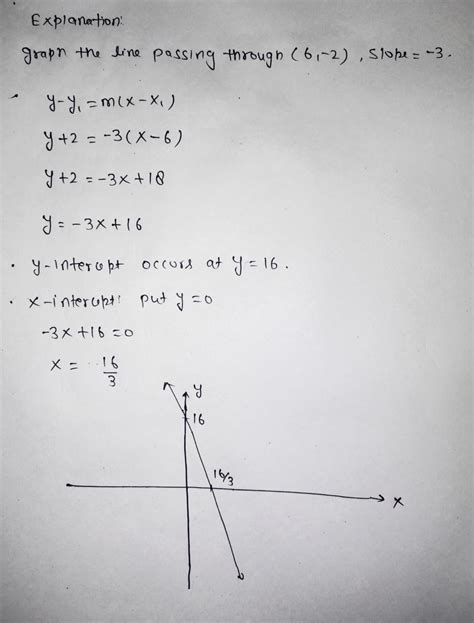 Explanation:
graph the line passing through (6,-2), slope = -3.
y-y₁ = m(x-x₁)
y+2 = -3(x-6)
y+2 = -3x+18
y = -3x+16
• y-intercept occurs at y=16.
• x-intercept: put y=0
-3x+16=0
x = 16/3
y
16
16/3
x